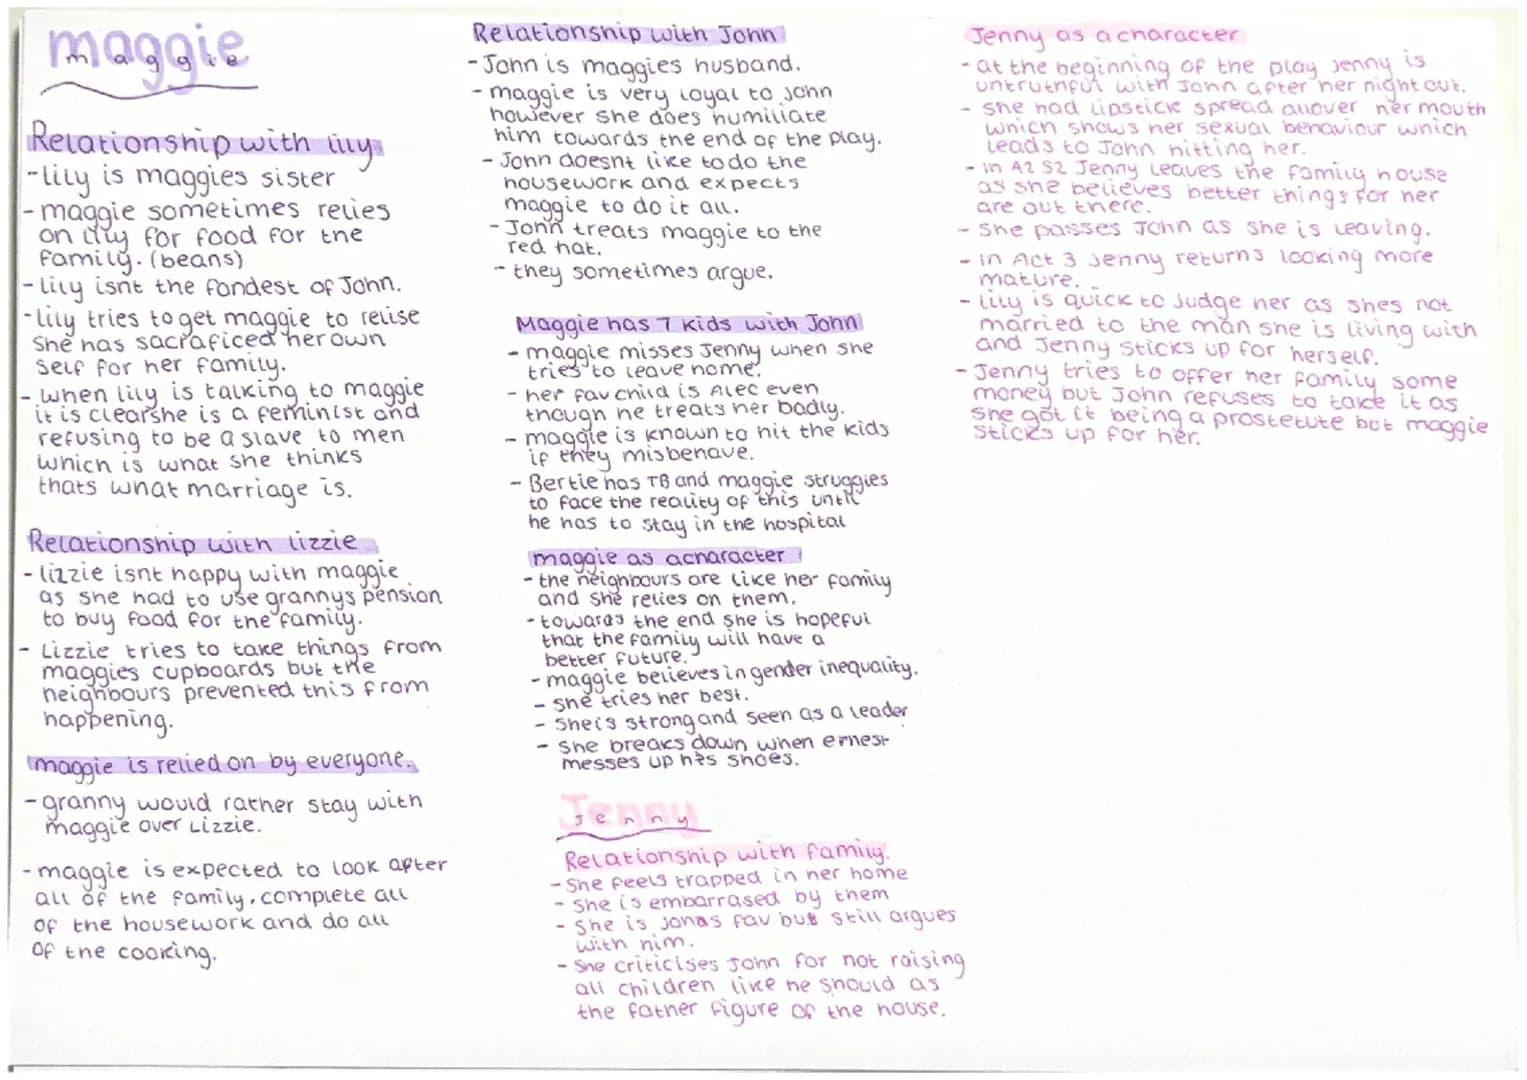 maggie
maggie
Relationship with lily
-lily is maggies sister
- maggie sometimes relies
on lily for food for the
family. (beans)
- lily isnt the fondest of John.
-lily tries to get maggie to relise
she has sacraficed her own
self for her family.
- when lily is talking to maggie
it is clear she is a feminist and
refusing to be a slave to men
which is what she thinks
thats what marriage is.
Relationship with lizzie
- lizzie isnt happy with maggie
as she had to use grannys pension
to buy food for the family.
- Lizzie tries to take things from
maggies cupboards but the
neighbours prevented this from
happening.
maggie is relied on by everyone.
- granny would rather stay with
maggie over Lizzie.
- maggie is expected to look after
all of the family, complete all
of the housework and do all
of the cooking.
Relationship with John
- John is maggies husband.
- maggie is very loyal to John
however she does humiliate
him towards the end of the play.
- John doesnt like to do the
housework and expects
maggie to do it all.
- John treats maggie to the
red hat.
- they sometimes argue.
Maggie has 7 kids with John
- maggie misses Jenny when she
tries to leave home.
- her fav child is Alec even
though he treats her badly.
- maggie is known to hit the kids
if they misbehave.
- Bertie has TB and maggie struggles
to face the reality of this until
he has to stay in the hospital
maggie as a character
- the neighbours are like her family
and she relies on them.
- towards the end she is hopeful
that the family will have a
better future.
- maggie believes in gender inequality.
- she tries her best.
- she is strong and seen as a leader
- she breaks down when ernest
messes up his shoes.
Jenny
Jenny
Relationship with family.
- She feels trapped in her home
- she is embarrased by them
- she is johns fav but still argues
with him.
- She criticises John for not raising
all children like he should as
the father figure of the house.
Jenny as a character
- at the beginning of the play Jenny is
untruthful with John after her night out.
- she had lipstick spread allover her mouth
which shows her sexual behaviour which
leads to John hitting her.
- in A2 S2 Jenny leaves the family house
as she believes better things for her
are out there.
- She passes John as she is leaving.
- in Act 3 Jenny returns looking more
mature.
- lily is quick to Judge her as shes not
married to the man she is living with
and Jenny sticks up for herself.
- Jenny tries to offer her family some
money but John refuses to take it as
she got it being a prostetute but maggie
sticks up for her.